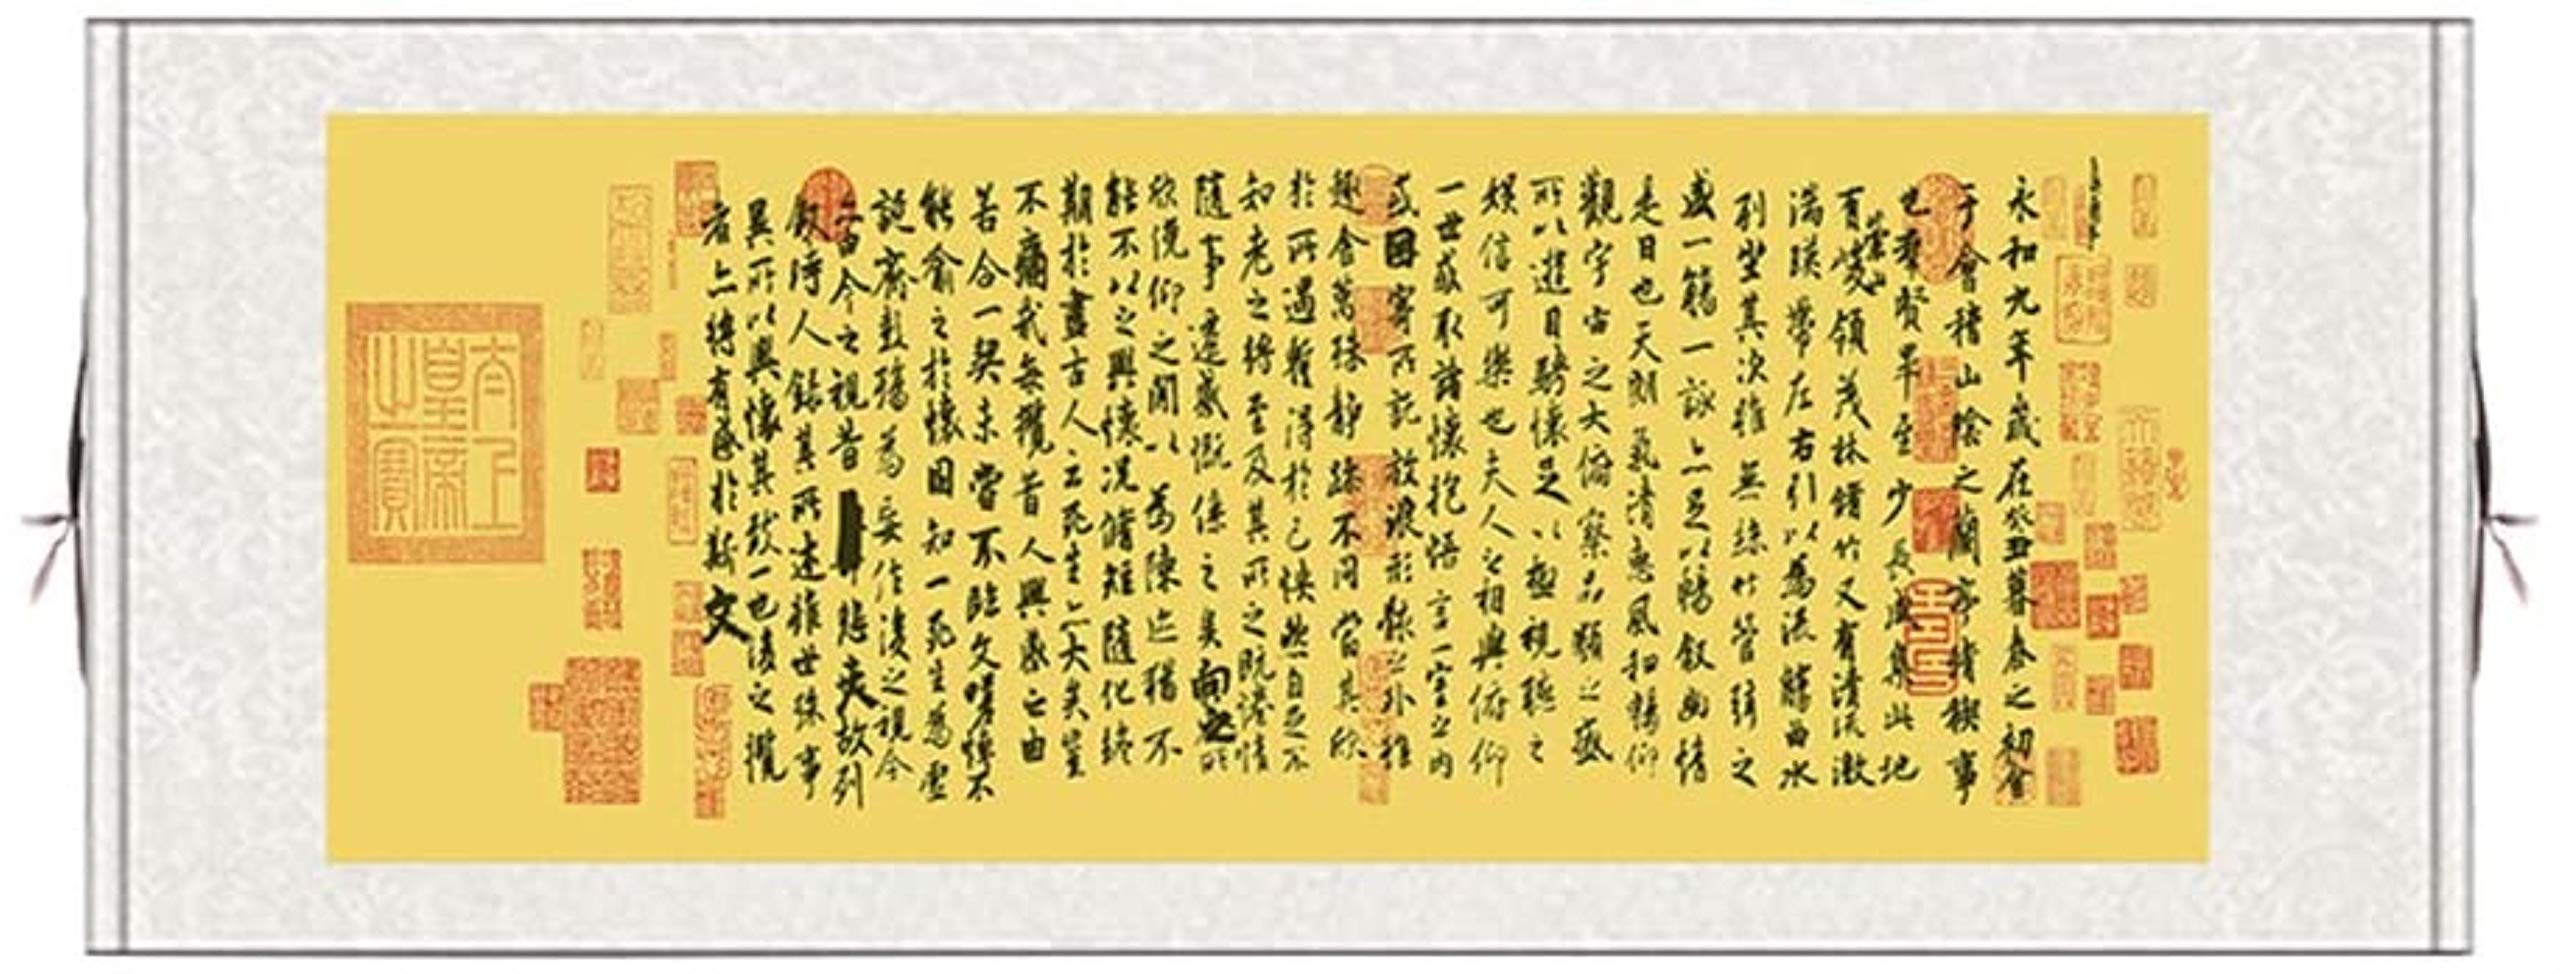 永和九年歲在癸丑暮春之初會
于會稽山陰之蘭亭脩禊事
也羣賢畢至少長咸集此地
有崇山峻領茂林脩竹又有清流激
湍暎帶左右引以為流觴曲水
列坐其次雖無絲竹管弦之
盛一觴一詠亦足以暢敘幽情
是日也天朗氣清惠風和暢仰
觀宇宙之大俯察品類之盛
所以遊目騁懷足以極視聽之
娛信可樂也夫人之相與俯仰
一世或取諸懷抱悟言一室之內
或因寄所託放浪形骸之外雖
趣舍萬殊靜躁不同當其欣
於所遇暫得於己怏然自足不
知老之將至及其所之既惓情
隨事遷感慨係之矣向之所
欣俛仰之閒以為陳迹猶不
能不以之興懷況脩短隨化終
期於盡古人云死生亦大矣豈
不痛哉每攬昔人興感之由
若合一契未嘗不臨文嗟悼不
能喻之於懷固知一死生為虛
誕齊彭殤為妄作後之視今
亦由今之視昔悲夫故列
敘時人錄其所述雖世殊事
異所以興懷其致一也後之攬
者亦將有感於斯文
太上
皇帝
之寶